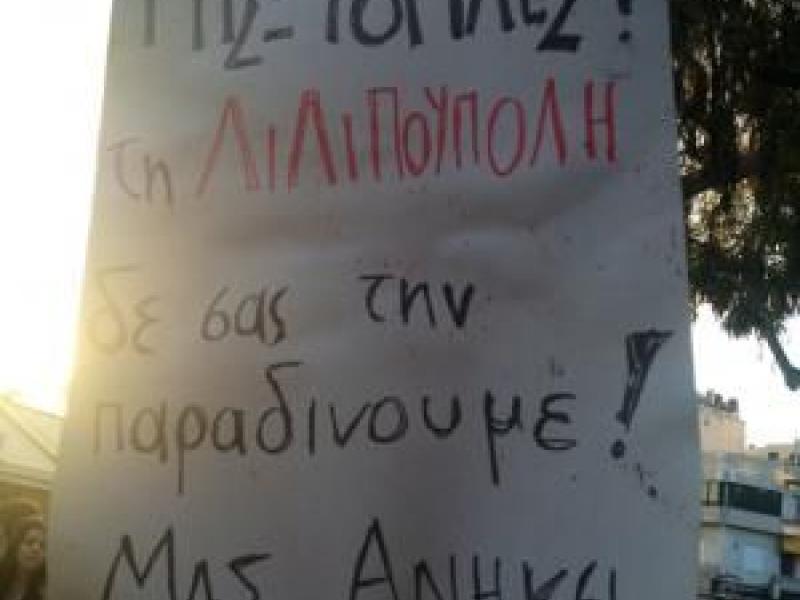 τη ΛΙΛΙΠΟΥΠΟΛΗ
δε σας την
παραδινουμε!
Μας Ανηκει